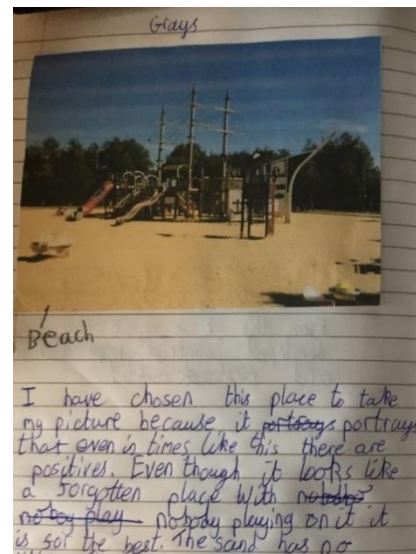 Grays
Beach
I have chosen this place to take
my picture because it portrays portrays
that even in times like this there are
positives. Even though it looks like
a forgotten place with
nobody playing on it it
is for the best. The sand has no